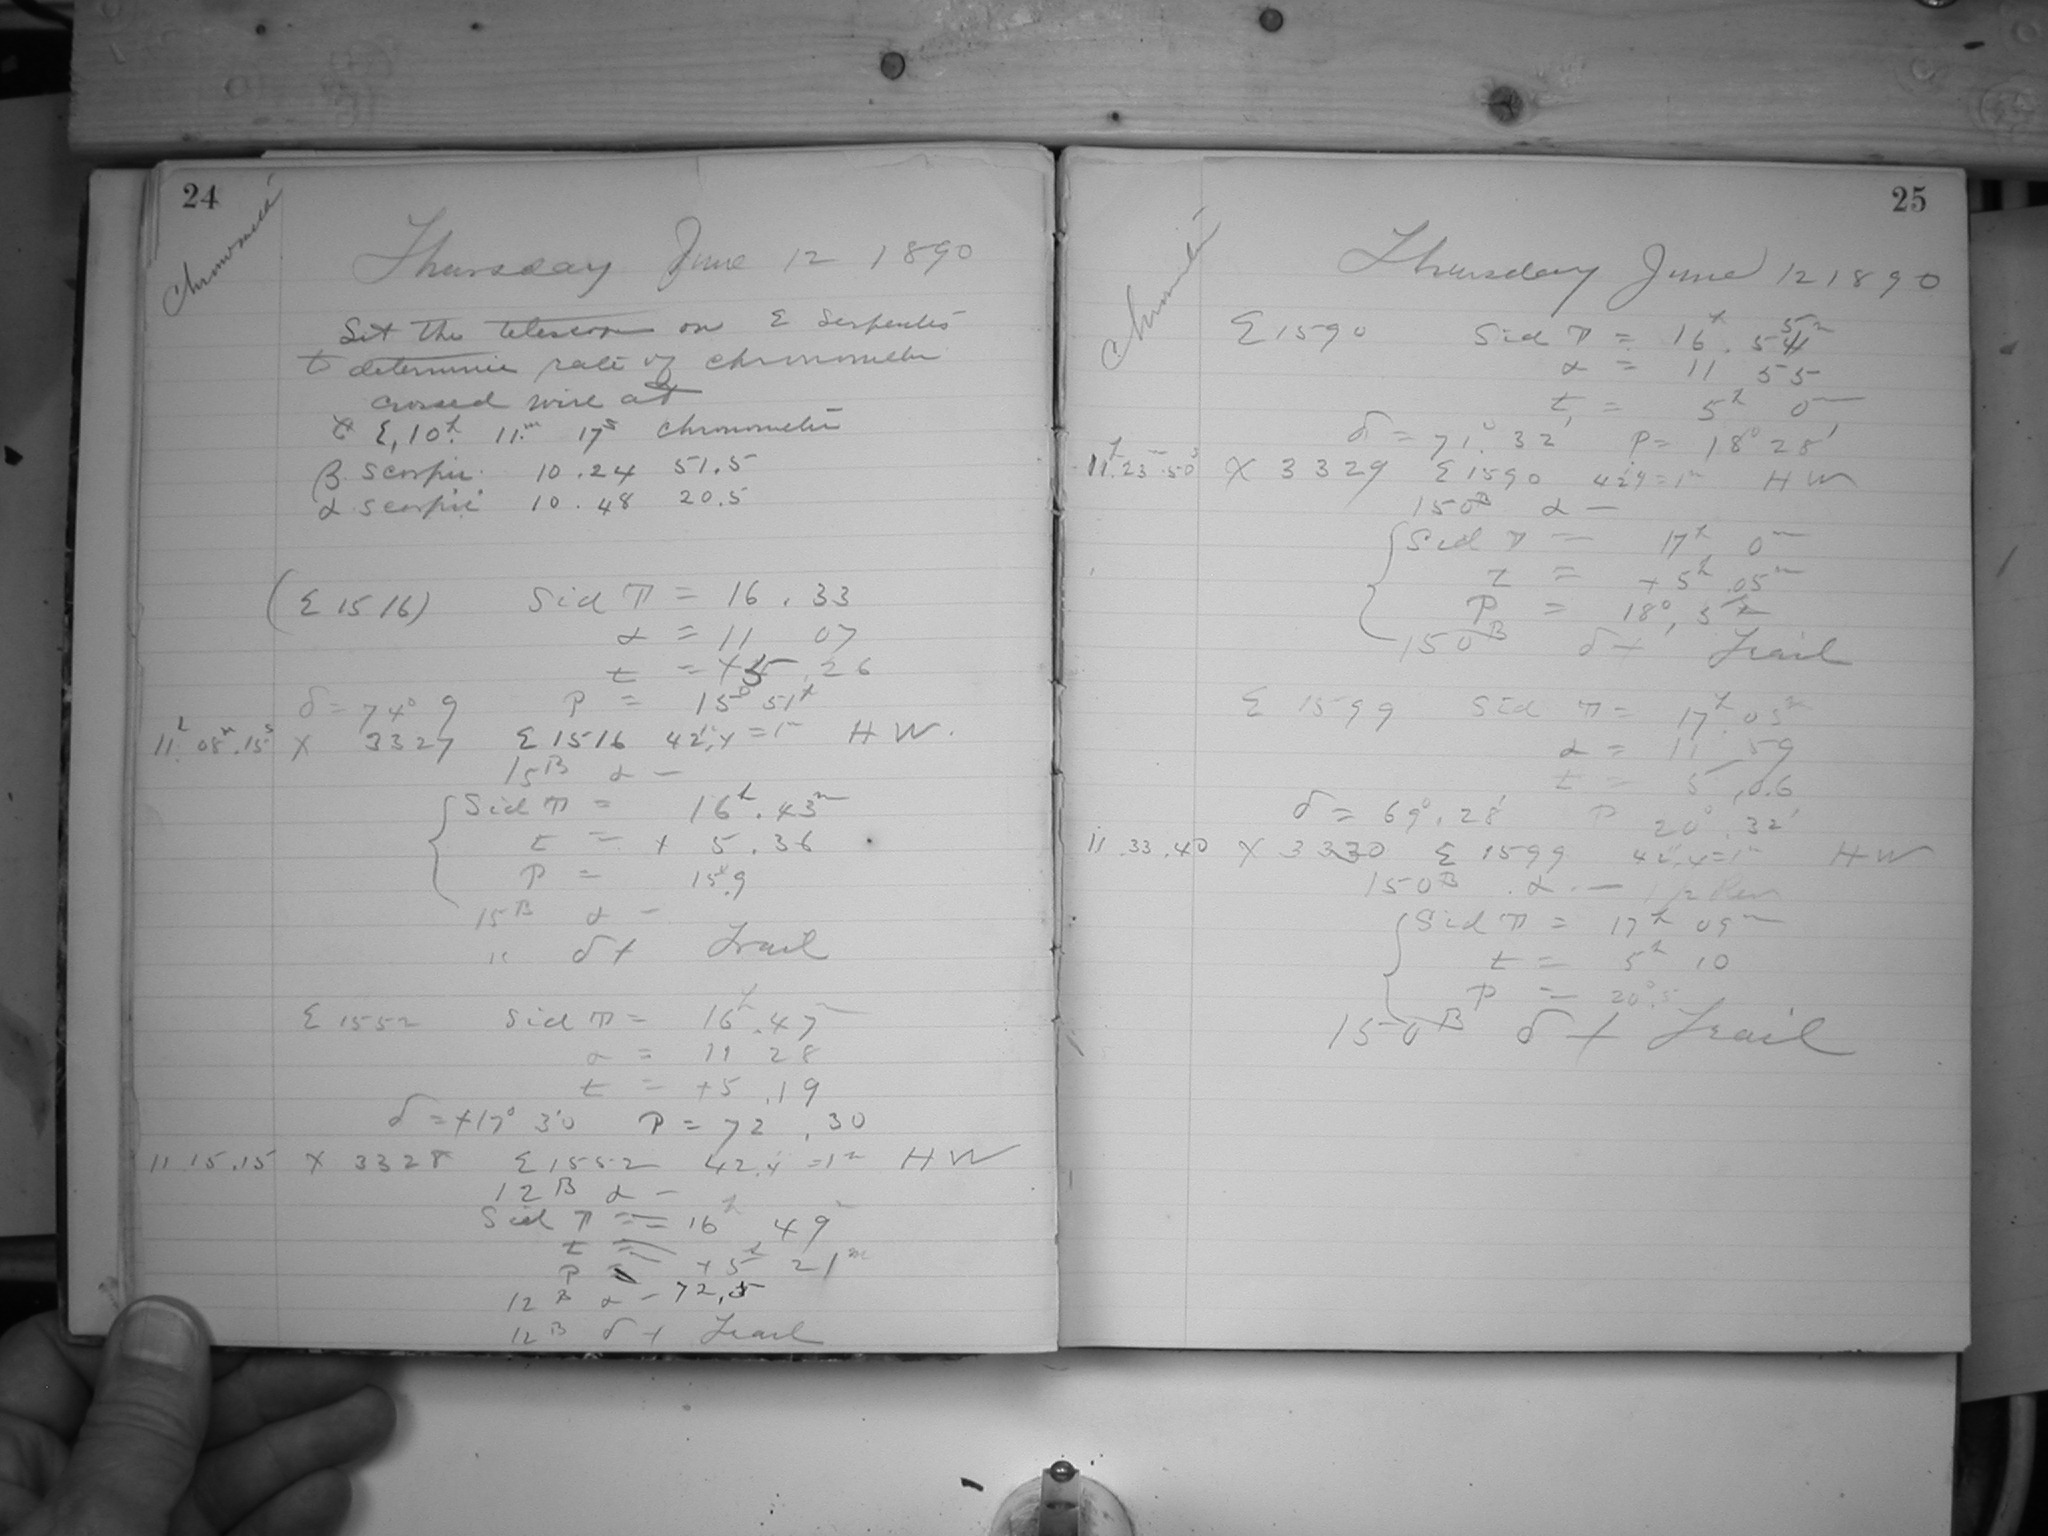 24
Chronometer
Thursday June 12 1890
Set the telescope on ε Serpentis
to determine rate of chronometer
crossed wire at
ε, 10h. 11m. 17s chronometer
β Scorpii. 10.24 51.5
α Scorpii 10.48 20.5
(Σ 1516) Sid T = 16.33
α = 11 07
t = +5.26
δ = 74° 9 P = 15° 51'
11h 08m.15s X 3327 Σ 1516 42".4 = 1" H W.
15B α —
Sid T = 16h.43m
t = + 5.36
P = 15°.9
15B α —
" δ + Trail
Σ 1552 Sid T = 16h.47m
α = 11 28
t = +5.19
δ = +17° 30 P = 72.30
11 15.15 X 3328 Σ 1552 42.4 = 1" H W
12B α —
Sid T = 16h 49m
t = +5h 21m
P = 72.5
12B α —
12B δ + Trail
25
Chronometer
Thursday June 12 1890
Σ 1590 Sid T = 16h. 55m
α = 11 55
t = 5h 0m
δ = 71.° 32' P = 18° 28'
11h.23m.50s X 3329 Σ 1590 42".4 = 1" H W
150B α —
Sid T = 17h 0m
t = +5h.05m
P = 18°.5
150B δ + Trail
Σ 1599 Sid T = 17h.05m
α = 11 59
t = 5.06
δ = 69°.28' P 20°.32'
11.33.40 X 3330 Σ 1599 42".4 = 1" H W
150B α — 1/2 Rev
Sid T = 17h 09m
t = 5h 10
P = 20°.5
150B δ + Trail